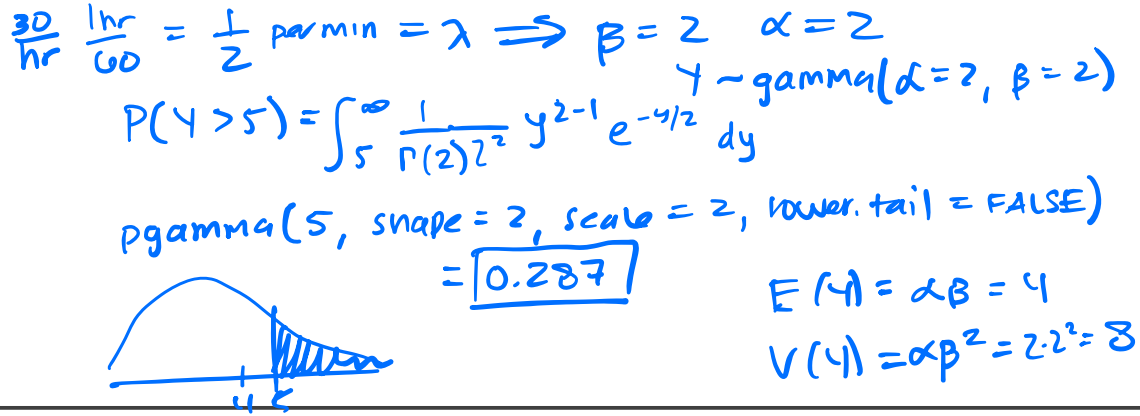 30/hr 1hr/60 = 1/2 per min = λ ⟹ β = 2 α = 2
Y ~ gamma(α = 2, β = 2)
P(Y > 5) = ∫₅^∞ 1/(Γ(2)2²) y^(2-1) e^(-y/2) dy
pgamma(5, shape = 2, scale = 2, lower.tail = FALSE)
= 0.287
E(Y) = αβ = 4
V(Y) = αβ² = 2·2² = 8
4 5